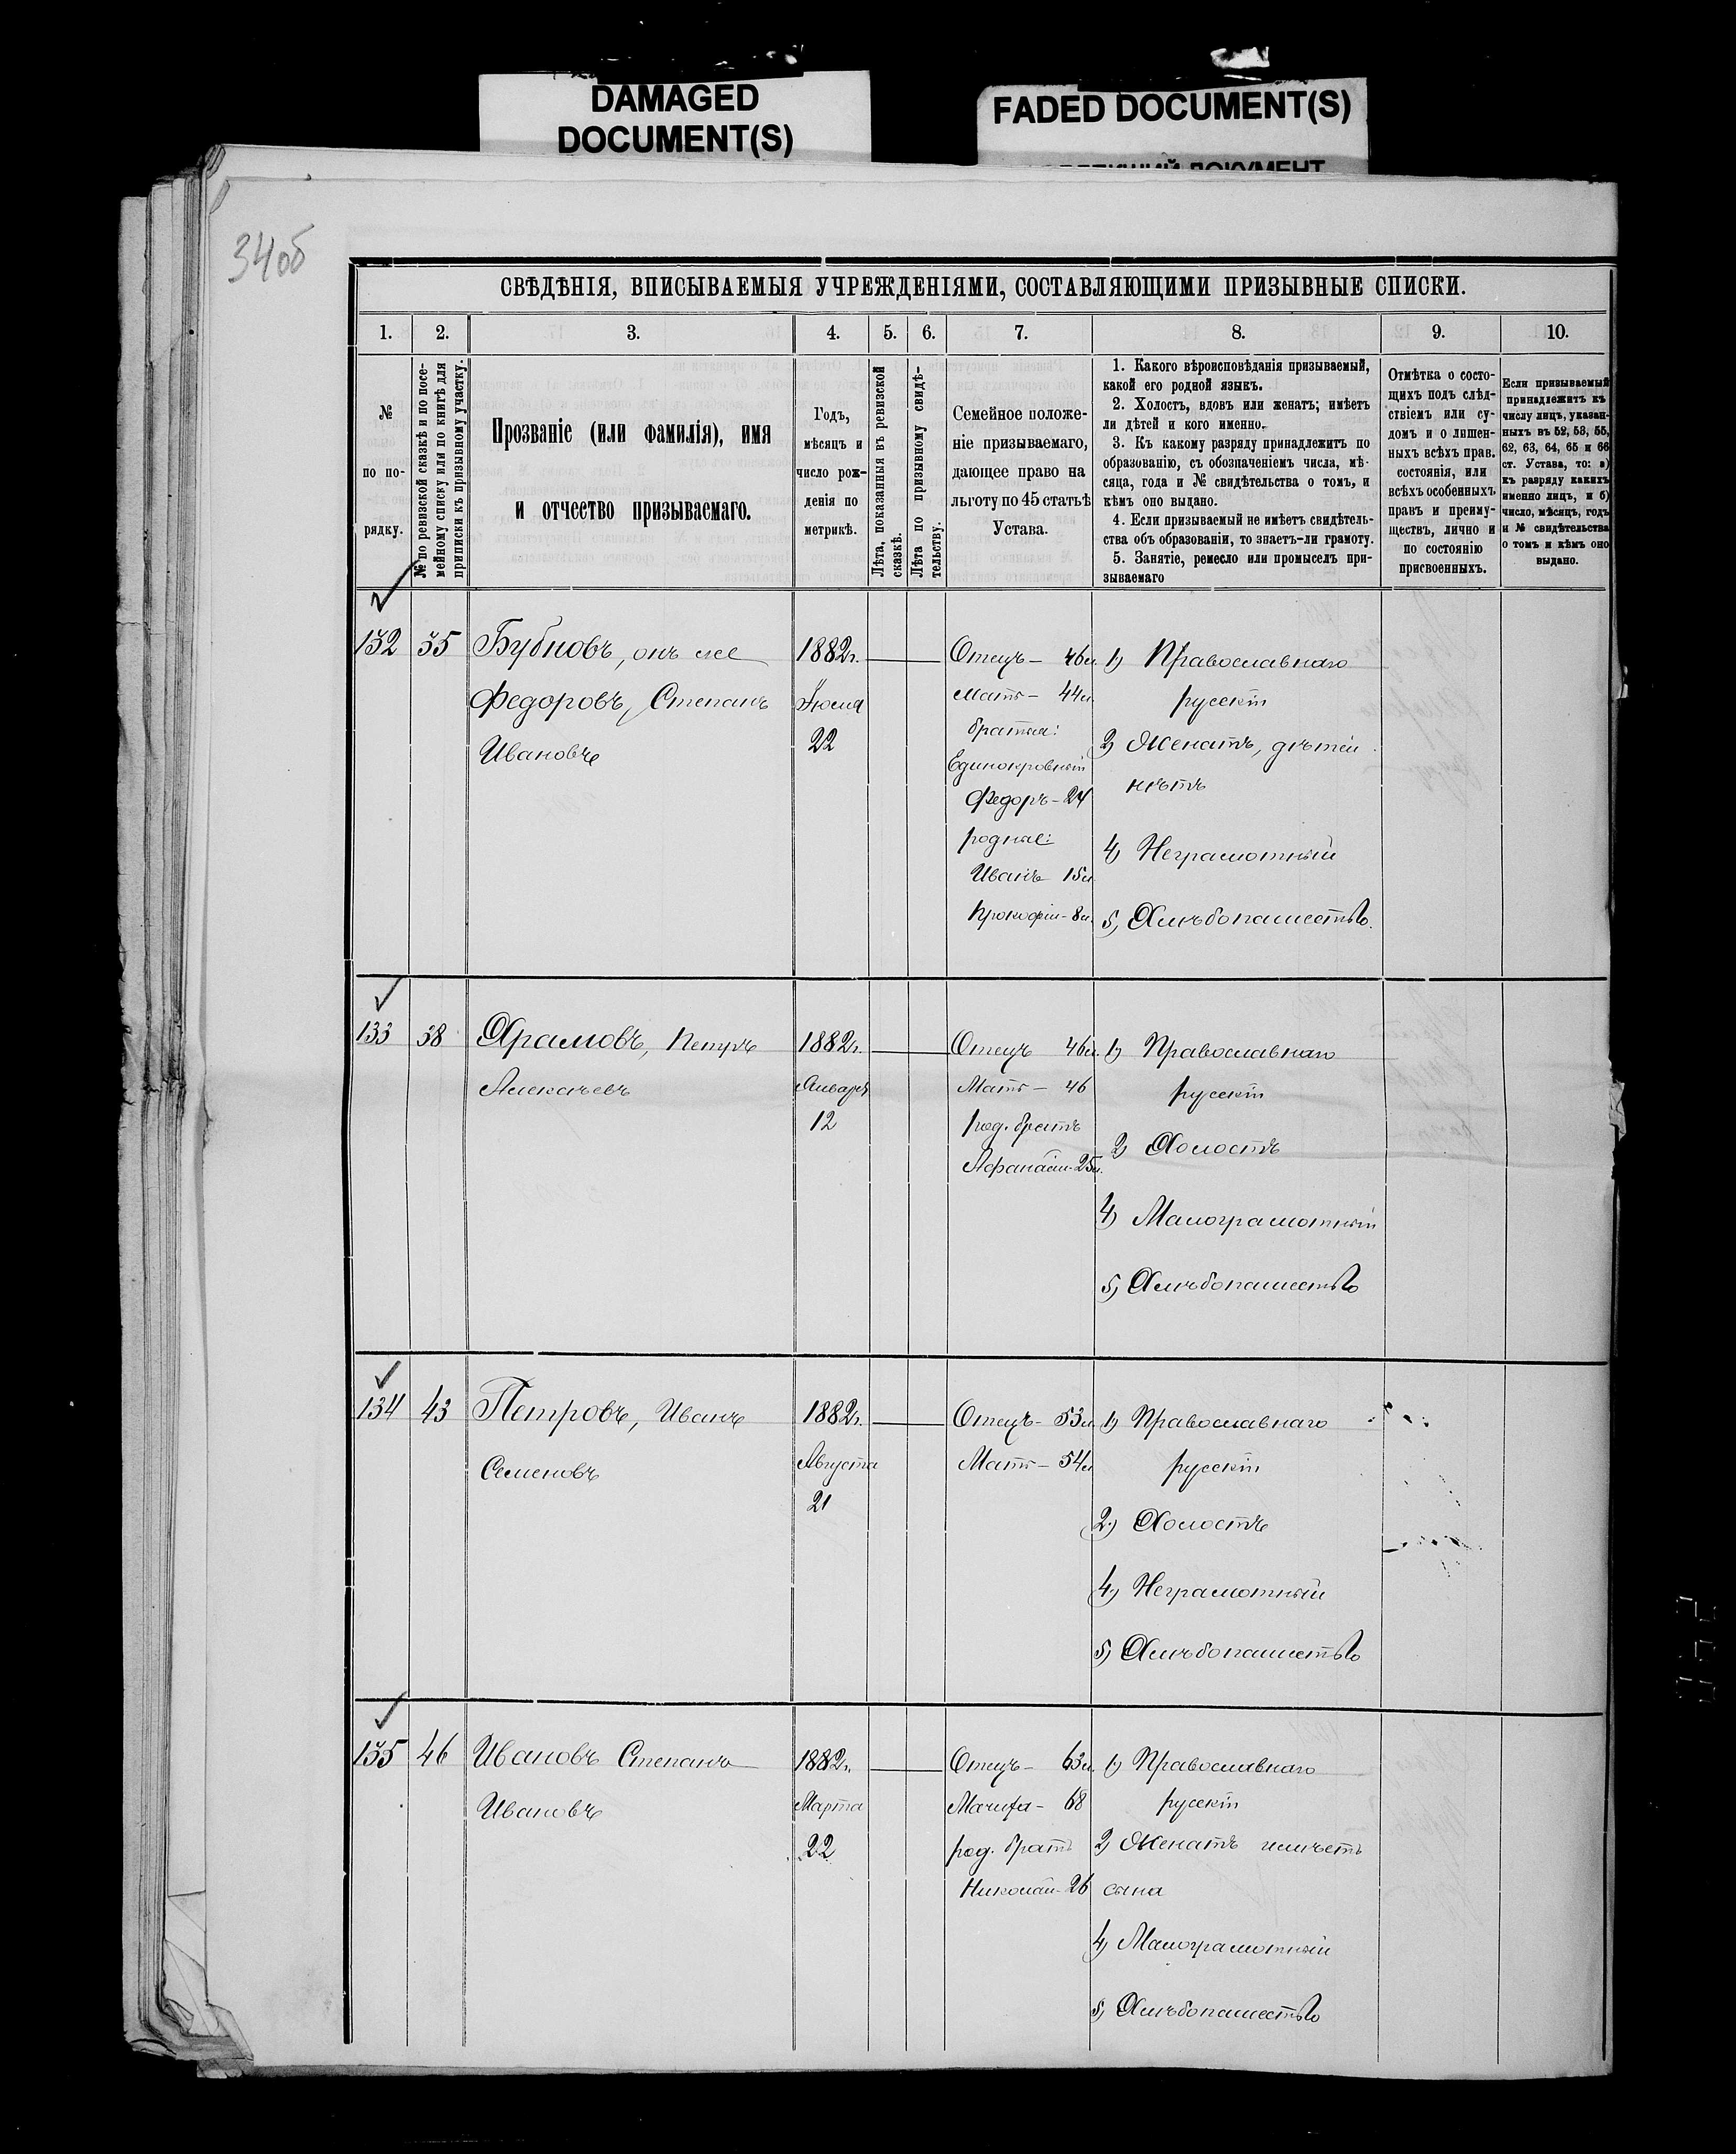 DAMAGED
DOCUMENT(S)
FADED DOCUMENT(S)
ДОКУМЕНТ
34об
СВѢДѢНІЯ, ВПИСЫВАЕМЫЯ УЧРЕЖДЕНІЯМИ, СОСТАВЛЯЮЩИМИ ПРИЗЫВНЫЕ СПИСКИ.
1. 2. 3. 4. 5. 6. 7. 8. 9. 10.
№
по по-
рядку.
№ по ревизской сказкѣ и по посе-
мейному списку или по книгѣ для
приписки къ призывному участку.
Прозваніе (или фамилія), имя
и отчество призываемаго.
Годъ,
мѣсяцъ и
число рож-
денія по
метрикѣ.
Лѣта, показанныя въ ревизской
сказкѣ.
Лѣта по призывному свидѣ-
тельству.
Семейное положе-
ніе призываемаго,
дающее право на
льготу по 45 статьѣ
Устава.
1. Какого вѣроисповѣданія призываемый,
какой его родной языкъ.
2. Холостъ, вдовъ или женатъ; имѣетъ
ли дѣтей и кого именно.
3. Къ какому разряду принадлежитъ по
образованію, съ обозначеніемъ числа, мѣ-
сяца, года и № свидѣтельства о томъ, и
кѣмъ оно выдано.
4. Если призываемый не имѣетъ свидѣтель-
ства объ образованіи, то знаетъ-ли грамоту.
5. Занятіе, ремесло или промыселъ при-
зываемаго
Отмѣтка о состо-
ящихъ подъ слѣд-
ствіемъ или су-
домъ и о лишен-
ныхъ всѣхъ прав.
состоянія, или
всѣхъ особенныхъ
правъ и преиму-
ществъ, лично и
по состоянію
присвоенныхъ.
Если призываемый
принадлежитъ къ
числу лицъ, указан-
ныхъ въ 52, 53, 55,
62, 63, 64, 65 и 66
ст. Устава, то: а)
къ разряду какихъ
именно лицъ, и б)
число, мѣсяцъ, годъ
и № свидѣтельства
о томъ и кѣмъ оно
выдано.
132 35 Бубновъ, онъ же
Федоровъ, Степанъ
Ивановъ
1882г.
Іюля
22
Отецъ - 46л.
Мать - 44л.
братья:
Единокровный
Федоръ - 24
родные:
Иванъ 15л.
Прокофій - 8л.
1) Православнаго
русскій
2) Женатъ, дѣтей
нѣтъ
4) Неграмотный
5) Хлѣбопашество.
133 38 Храмовъ, Петръ
Алексѣевъ
1882г.
Января
12
Отецъ 46л.
Мать - 46
род. братъ
Афанасій - 25л.
1) Православнаго
русскій
2) Холостъ
4) Малограмотный
5) Хлѣбопашество
134 43 Петровъ, Иванъ
Семеновъ
1882г.
Августа
21
Отецъ - 53л.
Мать - 54л
1) Православнаго
русскій
2) Холостъ
4) Неграмотный
5) Хлѣбопашество
135 46 Ивановъ Степанъ
Ивановъ
1882г.
Марта
22
Отецъ - 63л.
Мачиха - 68
род. братъ
Николай - 26
1) Православнаго
русскій
2) Женатъ имѣетъ
сына
4) Малограмотный
5) Хлѣбопашество